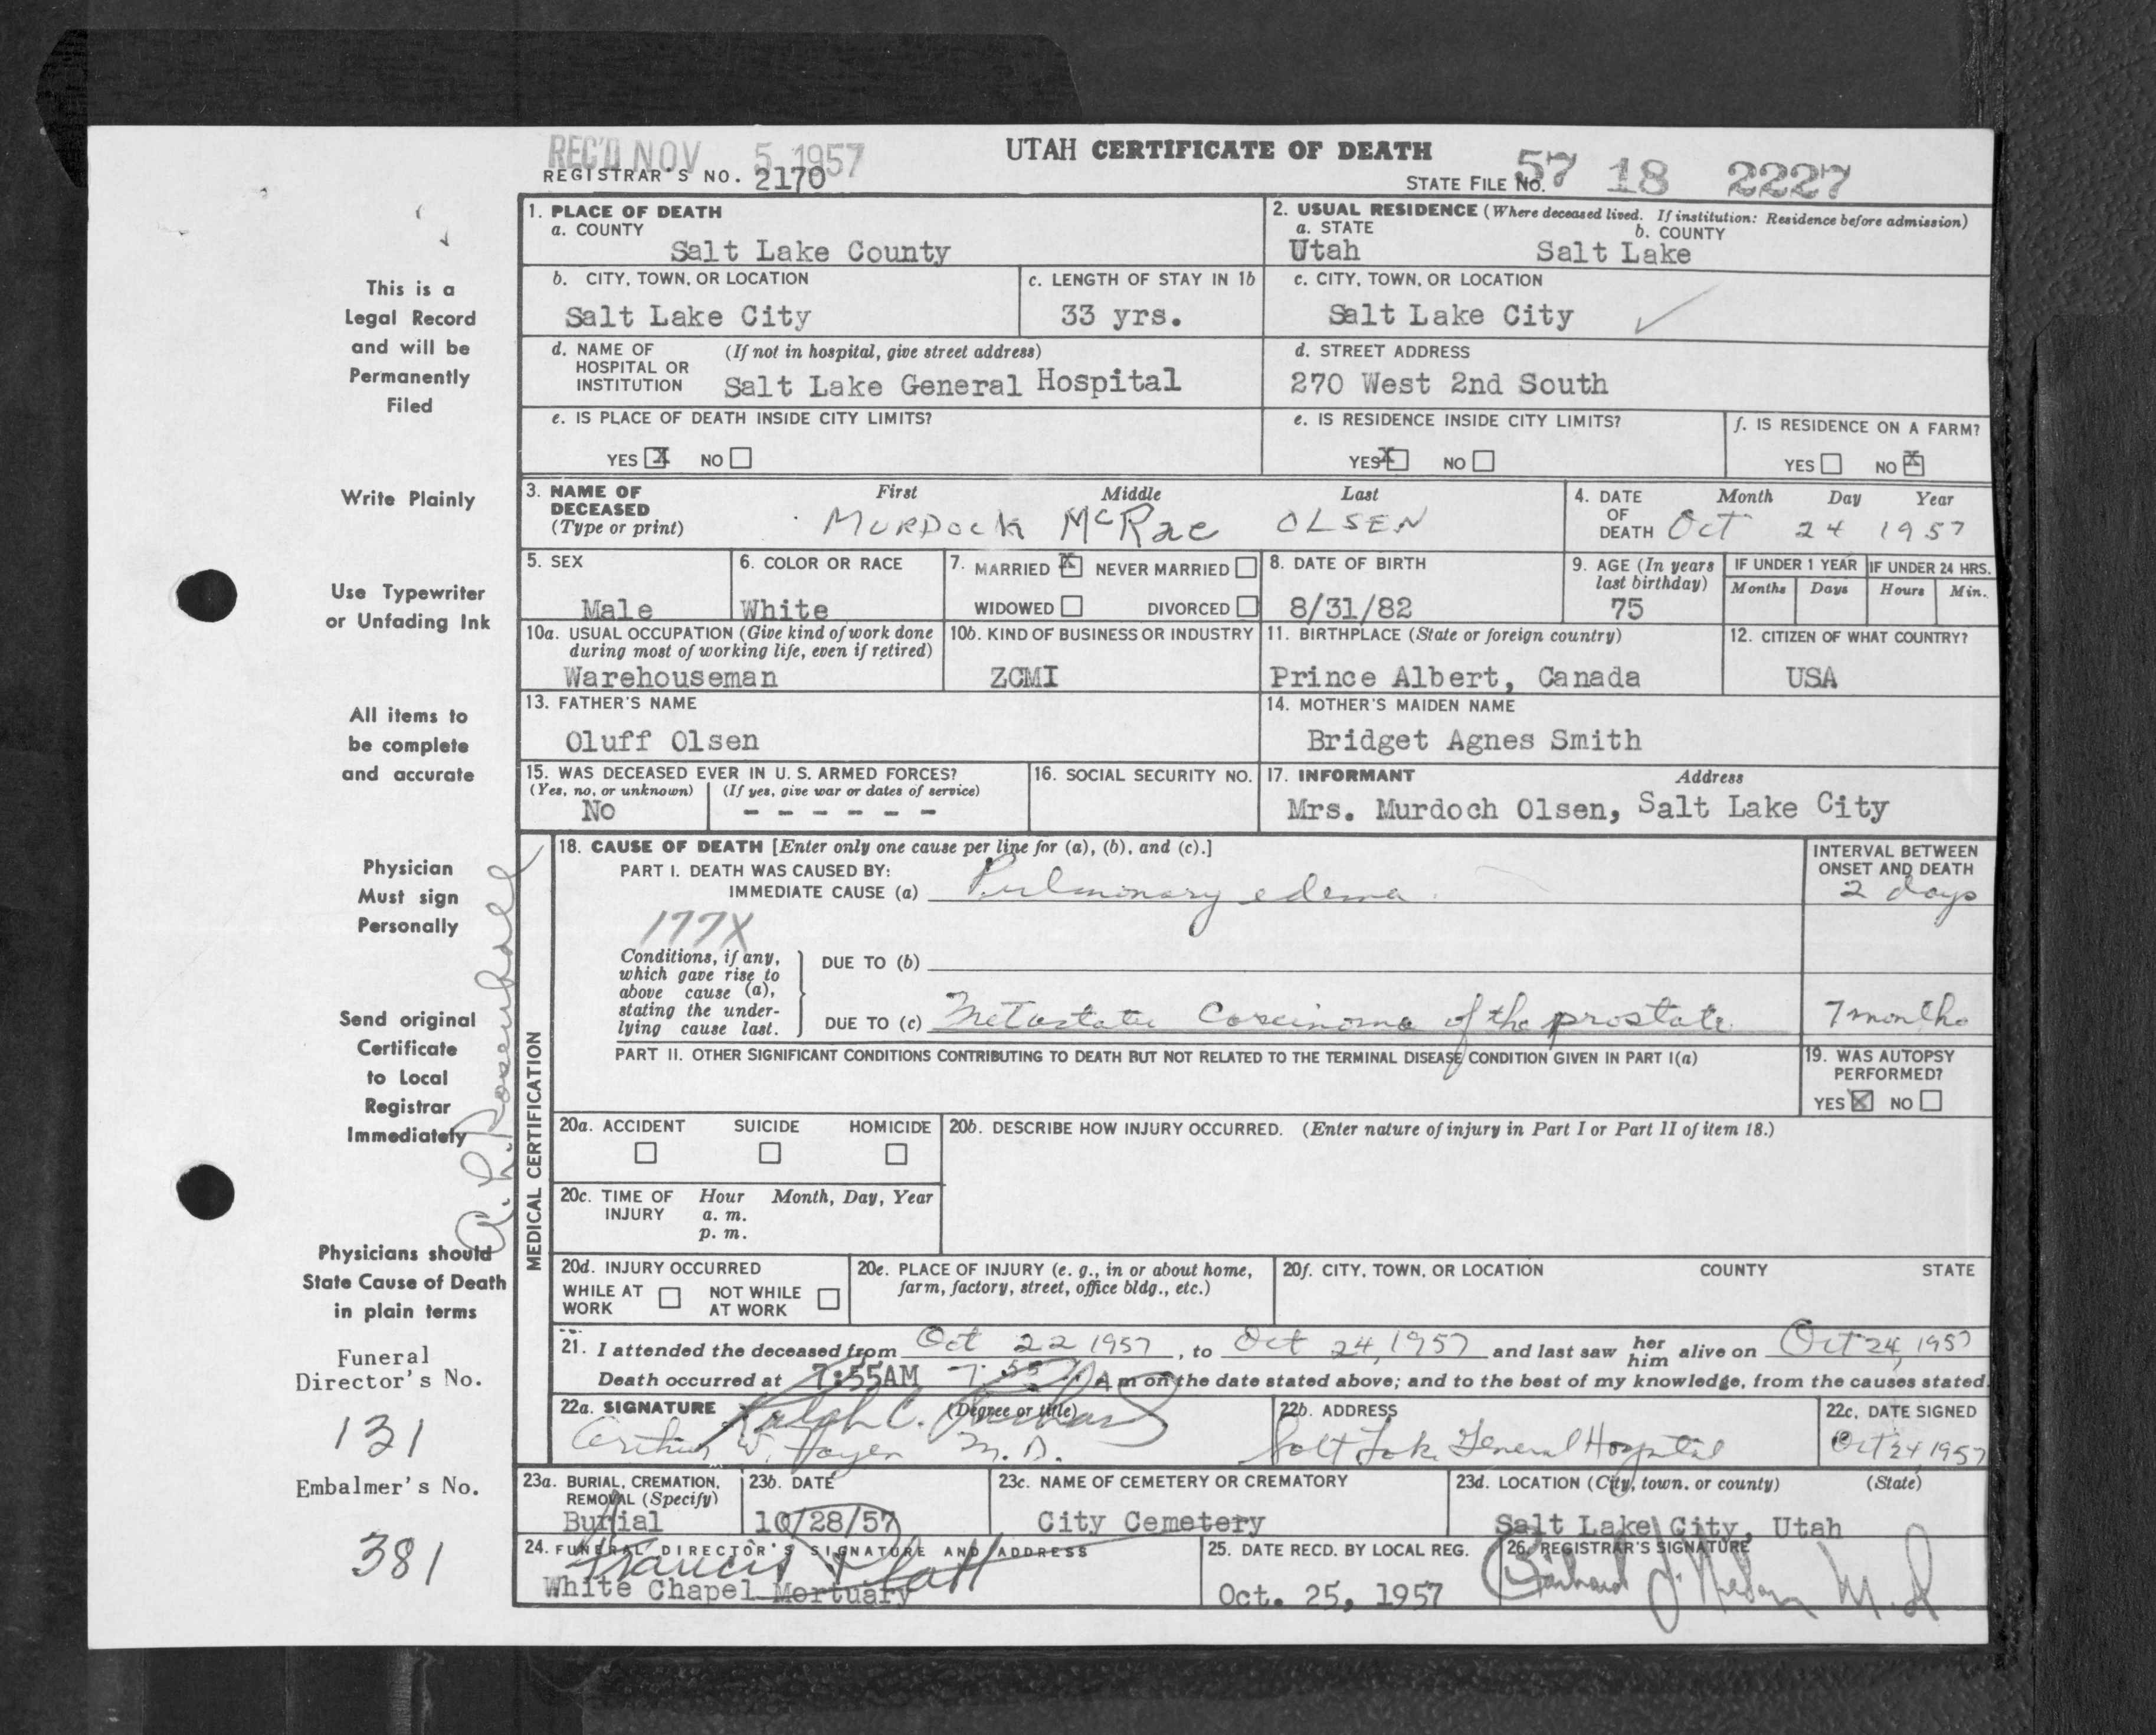 REC'D NOV 5 1957
UTAH CERTIFICATE OF DEATH
REGISTRAR'S NO. 2170
STATE FILE No. 57 18 2227
1. PLACE OF DEATH
a. COUNTY
Salt Lake County
2. USUAL RESIDENCE (Where deceased lived. If institution: Residence before admission)
a. STATE b. COUNTY
Utah Salt Lake
b. CITY, TOWN, OR LOCATION
Salt Lake City
c. LENGTH OF STAY IN 1b
33 yrs.
c. CITY, TOWN, OR LOCATION
Salt Lake City
d. NAME OF (If not in hospital, give street address)
HOSPITAL OR
INSTITUTION Salt Lake General Hospital
d. STREET ADDRESS
270 West 2nd South
e. IS PLACE OF DEATH INSIDE CITY LIMITS?
YES X NO
e. IS RESIDENCE INSIDE CITY LIMITS?
YES X NO
f. IS RESIDENCE ON A FARM?
YES NO X
3. NAME OF DECEASED
(Type or print)
First Middle Last
MURDOCK McRae OLSEN
4. DATE OF DEATH
Month Day Year
Oct 24 1957
5. SEX
Male
6. COLOR OR RACE
White
7. MARRIED X NEVER MARRIED
WIDOWED DIVORCED
8. DATE OF BIRTH
8/31/82
9. AGE (In years
last birthday)
75
IF UNDER 1 YEAR
Months Days
IF UNDER 24 HRS.
Hours Min.
10a. USUAL OCCUPATION (Give kind of work done
during most of working life, even if retired)
Warehouseman
10b. KIND OF BUSINESS OR INDUSTRY
ZCMI
11. BIRTHPLACE (State or foreign country)
Prince Albert, Canada
12. CITIZEN OF WHAT COUNTRY?
USA
13. FATHER'S NAME
Oluff Olsen
14. MOTHER'S MAIDEN NAME
Bridget Agnes Smith
15. WAS DECEASED EVER IN U. S. ARMED FORCES?
(Yes, no, or unknown) (If yes, give war or dates of service)
No - - - - - -
16. SOCIAL SECURITY NO.
17. INFORMANT Address
Mrs. Murdoch Olsen, Salt Lake City
MEDICAL CERTIFICATION
18. CAUSE OF DEATH [Enter only one cause per line for (a), (b), and (c).]
PART I. DEATH WAS CAUSED BY:
IMMEDIATE CAUSE (a) Pulmonary edema
INTERVAL BETWEEN
ONSET AND DEATH
2 days
177X
Conditions, if any,
which gave rise to
above cause (a),
stating the under-
lying cause last.
DUE TO (b)
DUE TO (c) Metastatic Carcinoma of the prostate
7 months
PART II. OTHER SIGNIFICANT CONDITIONS CONTRIBUTING TO DEATH BUT NOT RELATED TO THE TERMINAL DISEASE CONDITION GIVEN IN PART I(a)
19. WAS AUTOPSY
PERFORMED?
YES X NO
20a. ACCIDENT SUICIDE HOMICIDE
20b. DESCRIBE HOW INJURY OCCURRED. (Enter nature of injury in Part I or Part II of item 18.)
20c. TIME OF INJURY
Hour Month, Day, Year
a. m.
p. m.
20d. INJURY OCCURRED
WHILE AT WORK NOT WHILE AT WORK
20e. PLACE OF INJURY (e. g., in or about home,
farm, factory, street, office bldg., etc.)
20f. CITY, TOWN, OR LOCATION COUNTY STATE
21. I attended the deceased from Oct 22 1957, to Oct 24, 1957 and last saw her him alive on Oct 24, 1957
Death occurred at 7:55AM 7:55 A m on the date stated above; and to the best of my knowledge, from the causes stated.
22a. SIGNATURE (Degree or title)
Ralph C.
Arthur W. Hayen M.D.
22b. ADDRESS
Salt Lake General Hospital
22c. DATE SIGNED
Oct 24, 1957
23a. BURIAL, CREMATION,
REMOVAL (Specify)
Burial
23b. DATE
10/28/57
23c. NAME OF CEMETERY OR CREMATORY
City Cemetery
23d. LOCATION (City, town, or county) (State)
Salt Lake City, Utah
24. FUNERAL DIRECTOR'S SIGNATURE AND ADDRESS
Francis Platt
White Chapel Mortuary
25. DATE RECD. BY LOCAL REG.
Oct. 25, 1957
26. REGISTRAR'S SIGNATURE
M.D.
This is a
Legal Record
and will be
Permanently
Filed
Write Plainly
Use Typewriter
or Unfading Ink
All items to
be complete
and accurate
Physician
Must sign
Personally
Send original
Certificate
to Local
Registrar
Immediately
Physicians should
State Cause of Death
in plain terms
Funeral
Director's No.
131
Embalmer's No.
381